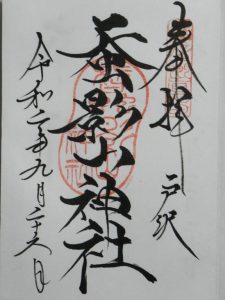 奉拝
戸沢
蚕影山神社
令和二年九月二十六日